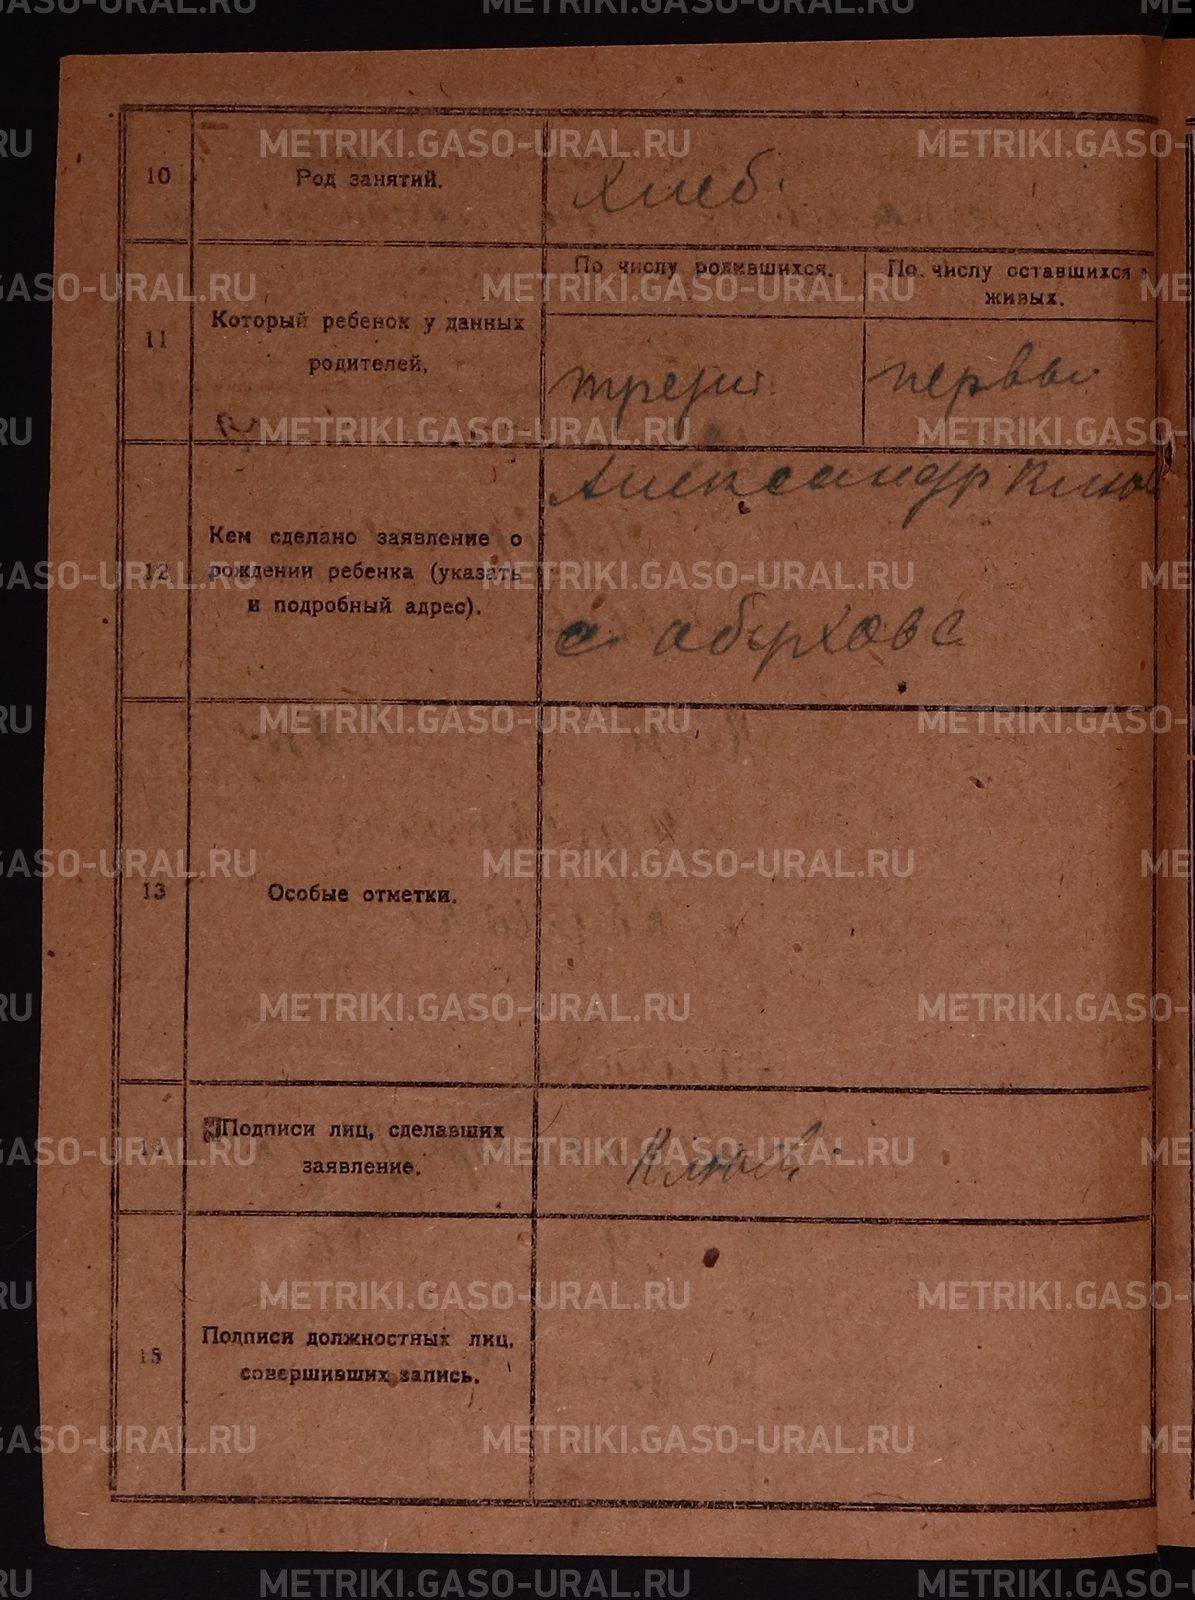 10
Род занятий.
Хлеб.
11
Который ребенок у данных
родителей.
По числу родившихся.
По числу оставшихся в
живых.
первы
12
Кем сделано заявление о
рождении ребенка (указать
и подробный адрес).
Александр
с.
13
Особые отметки.
14
Подписи лиц, сделавших
заявление.
15
Подписи должностных лиц,
совершивших запись.
METRIKI.GASO-URAL.RU